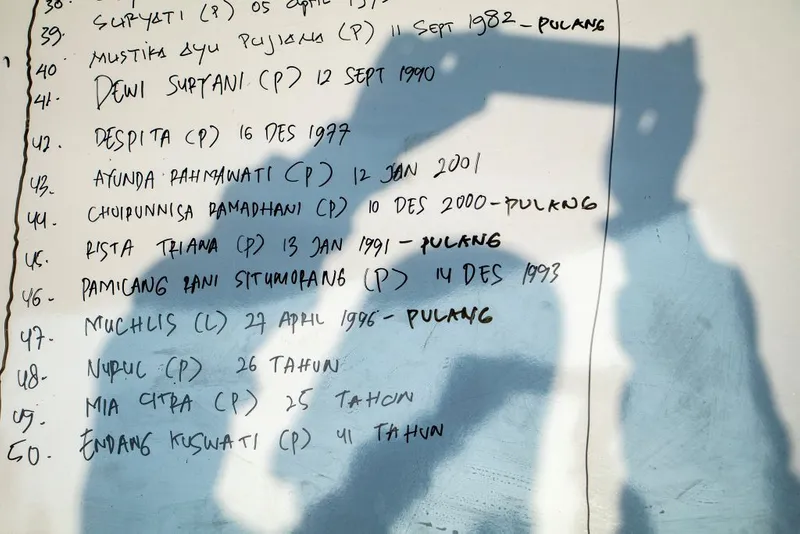 38.
39. SURYATI (P) 05 April
40. MUSTIKA AYU PUJIANA (P) 11 SEPT 1982 - PULANG
41. DEWI SURYANI (P) 12 SEPT 1990
42. DESPITA (P) 16 DES 1977
43. AYUNDA RAHMAWATI (P) 12 JAN 2001
44. CHOIRUNNISA RAMADHANI (P) 10 DES 2000 - PULANG
45. RISTA TRIANA (P) 13 JAN 1991 - PULANG
46. PAMILANG RANI SITUMORANG (P) 14 DES 1993
47. MUCHLIS (L) 27 APRIL 1996 - PULANG
48. NURUL (P) 26 TAHUN
49. MIA CITRA (P) 25 TAHUN
50. ENDANG KUSWATI (P) 41 TAHUN